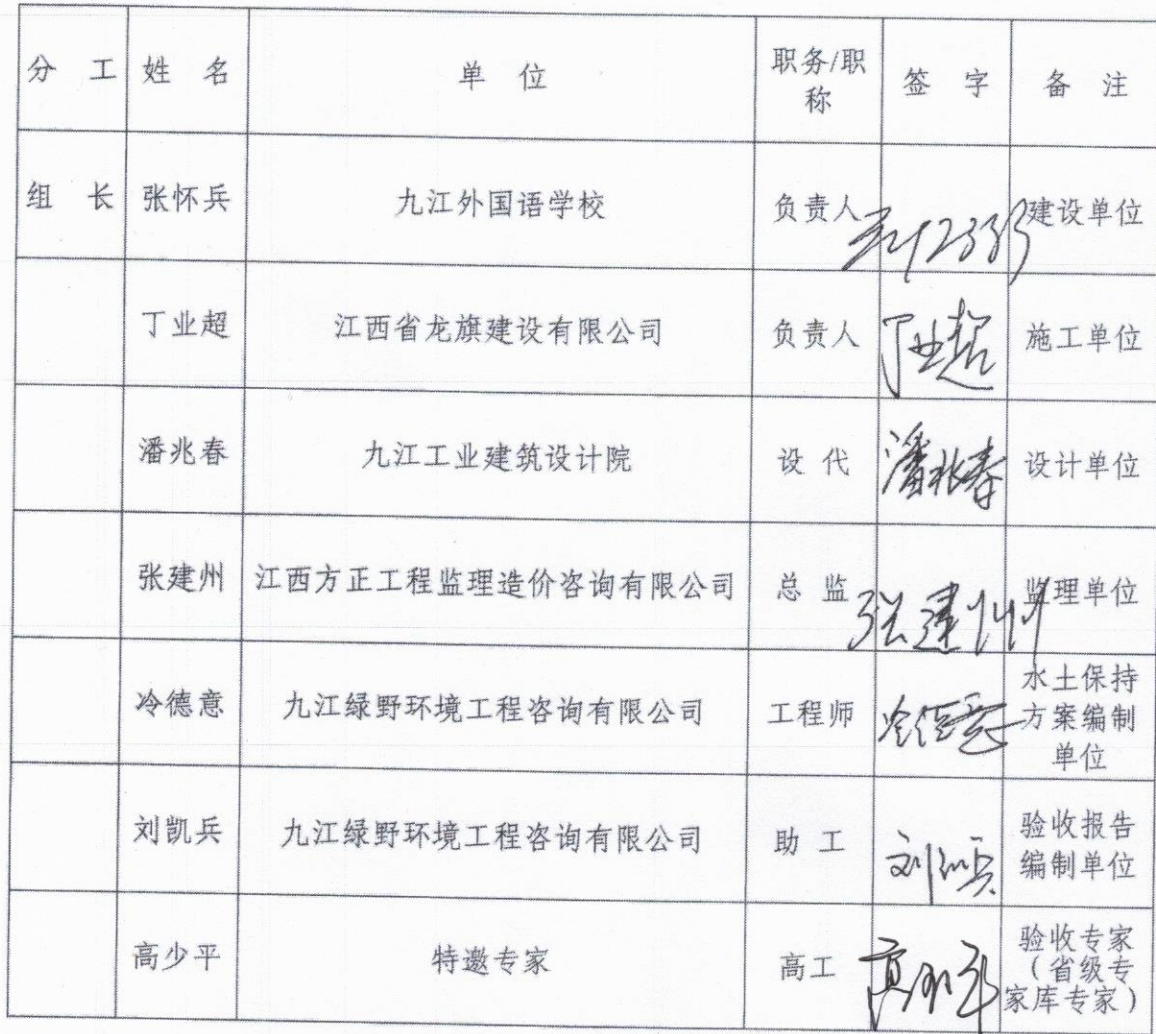 分 工 姓 名 单 位 职务/职称 签 字 备 注
组 长 张怀兵 九江外国语学校 负责人 建设单位
丁业超 江西省龙旗建设有限公司 负责人 丁业超 施工单位
潘兆春 九江工业建筑设计院 设 代 潘兆春 设计单位
张建州 江西方正工程监理造价咨询有限公司 总 监 张建州 监理单位
冷德意 九江绿野环境工程咨询有限公司 工程师 冷德意 水土保持方案编制单位
刘凯兵 九江绿野环境工程咨询有限公司 助 工 刘凯兵 验收报告编制单位
高少平 特邀专家 高工 验收专家（省级专家库专家）